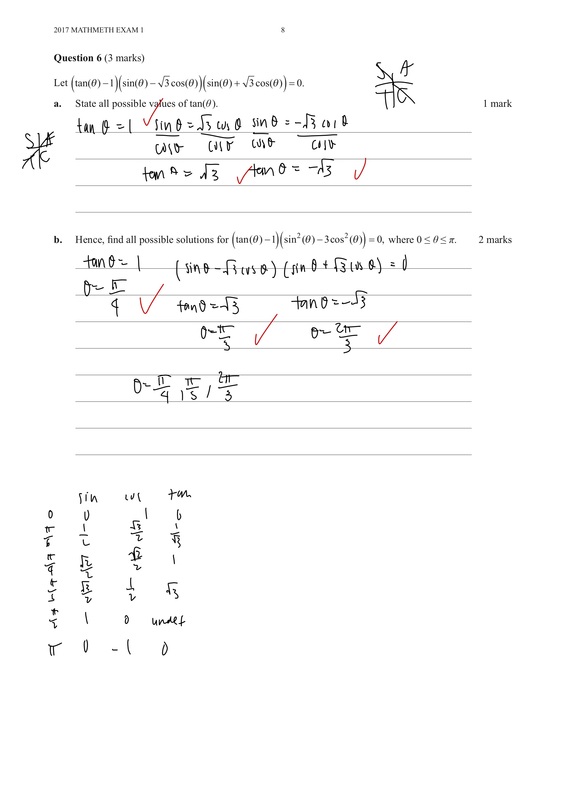 2017 MATHMETH EXAM 1
8
Question 6 (3 marks)
Let (tan(θ) − 1)(sin(θ) − √3 cos(θ))(sin(θ) + √3 cos(θ)) = 0.
S A
T C
a. State all possible values of tan(θ). 1 mark
tan θ = 1 ✓ sin θ/cos θ = √3 cos θ/cos θ sin θ/cos θ = −√3 cos θ/cos θ
S A
T C
tan θ = √3 ✓ tan θ = −√3 ✓
b. Hence, find all possible solutions for (tan(θ) − 1)(sin²(θ) − 3cos²(θ)) = 0, where 0 ≤ θ ≤ π. 2 marks
tan θ = 1 (sin θ − √3 cos θ) (sin θ + √3 cos θ) = 0
θ = π/4 ✓ tan θ = √3 tan θ = −√3
θ = π/3 ✓ θ = 2π/3 ✓
θ = π/4, π/3, 2π/3
sin cos tan
0 0 1 0
π/6 1/2 √3/2 1/√3
π/4 √2/2 √2/2 1
π/3 √3/2 1/2 √3
π/2 1 0 undef
π 0 −1 0